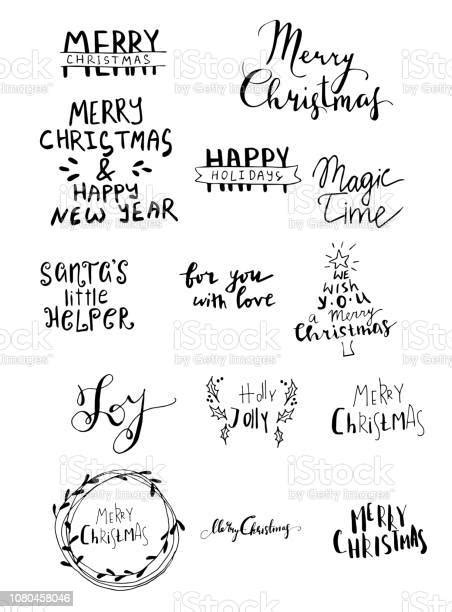 MERRY
CHRISTMAS
MERRY
Merry
Christmas
MERRY
CHRISTMAS
&
HAPPY
NEW YEAR
HAPPY
HOLIDAYS
HAPPY
Magic
Time
SANTA'S
little
HELPER
for you
with love
WE
WISH
y.o.u
a Merry
Christmas
Joy
Holly
Jolly
MERRY
CHRISTMAS
MERRY
CHRISTMAS
Merry Christmas
MERRY
CHRISTMAS
iStock
by Getty Images
1080458046